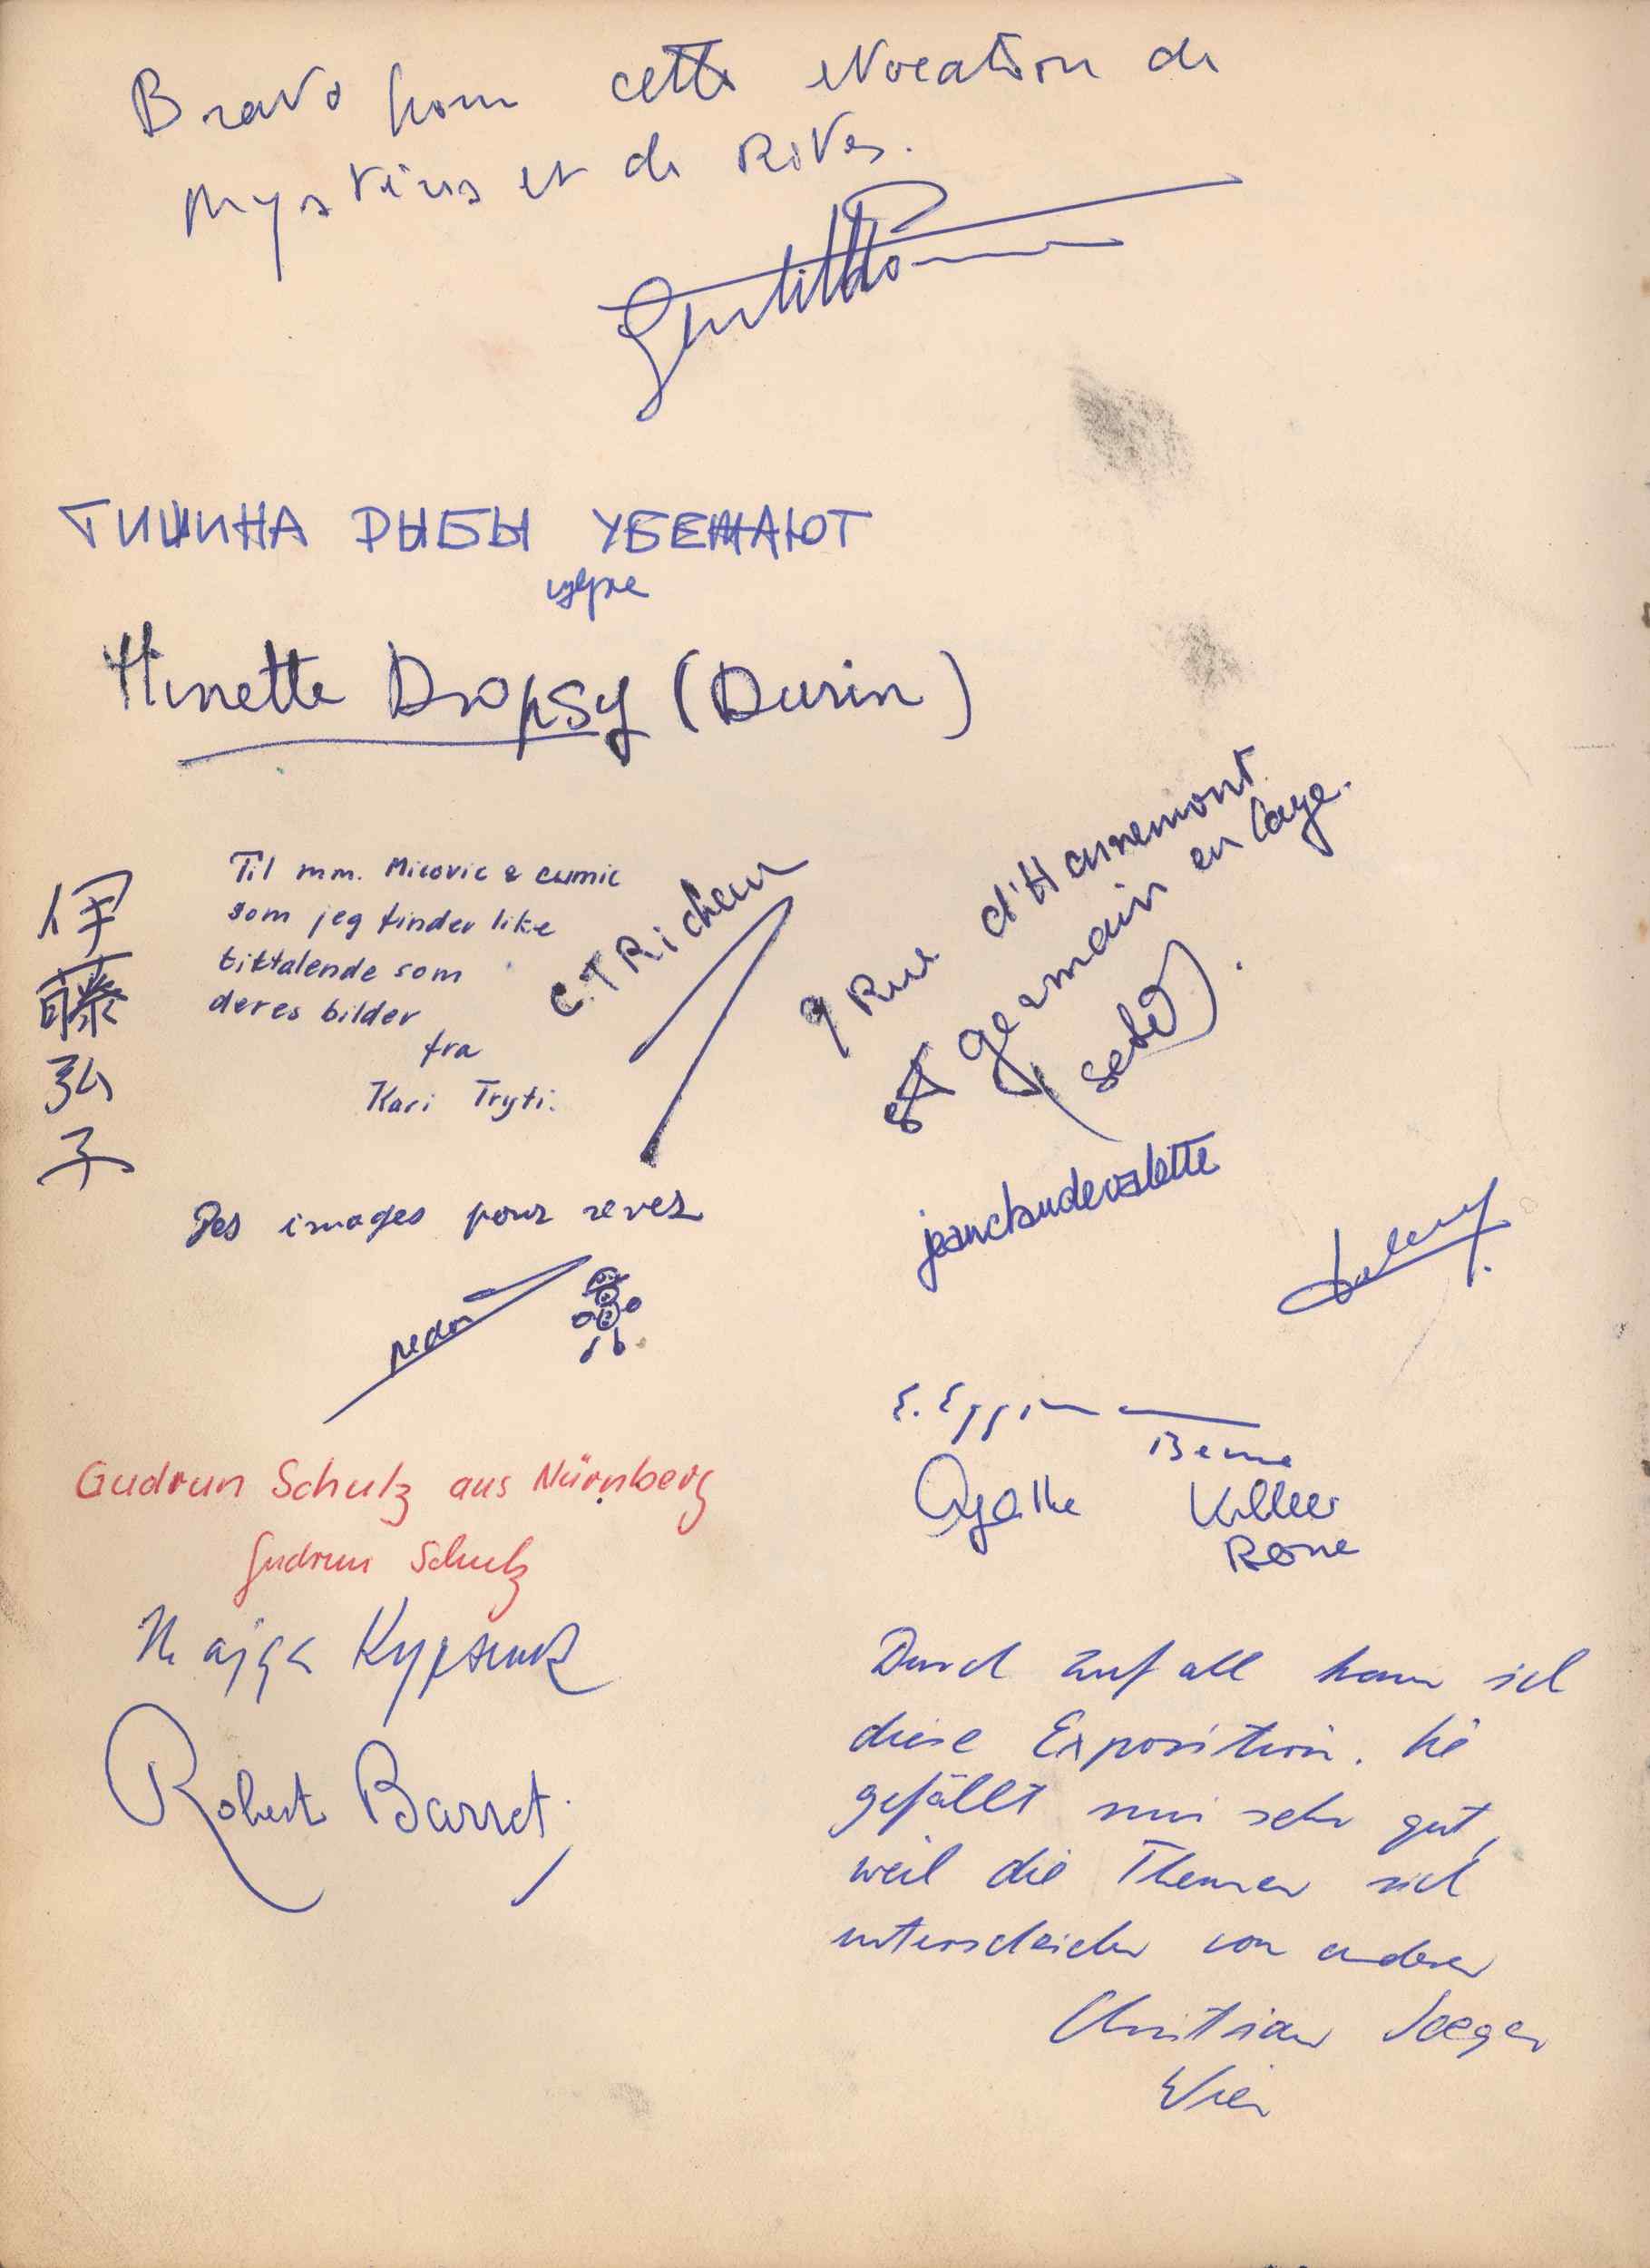 Bravo pour cette evocation de
Mystères et de Rites.
ТИШИНА РЫБЫ УБЕЖАЮТ
Ninette Dropsy (Durin)
伊藤弘子
Til mm. Micovic & cumic
som jeg finder like
tiltalende som
deres bilder
fra
Kari Tryti.
C.T Richeux
9 Rue d'Hennemont
St Germain en Laye.
(Seto).
jeanclaudevalette
Des images pour rever
Gudrun Schulz aus Nürnberg
Gudrun Schulz
E. Eggim
Berne
Agathe
Rome
Robert Barret.
Durch Zufall kam ich
diese Exposition. Sie
gefällt mir sehr gut,
weil die Themen sich
unterscheiden von anderen
Christian Jaeger
Wien